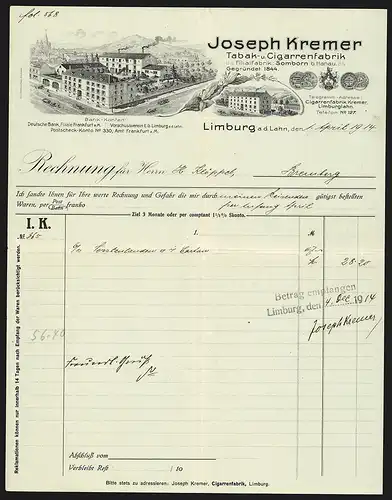 Joseph Kremer
Tabak- u. Cigarrenfabrik
Filialfabrik: Somborn b. Hanau.
Gegründet 1844.
Bank-Konten:
Deutsche Bank, Filiale Frankfurt a.M. Vorschussverein E.G. Limburg a.d. Lahn.
Postscheck-Konto No 330, Amt Frankfurt a.M.
Telegramm-Adresse:
Cigarrenfabrik Kremer,
Limburglahn.
Telefon No 127.
Limburg a.d. Lahn, den April 1914
Rechnung für Herrn H. Klöppel,
Ich sandte Ihnen für Ihre werte Rechnung und Gefahr die mir durch meinen Reisenden gütigst bestellten
Waren, per Post franko per Anfang April
Ziel 3 Monate oder per comptant 1½% Skonto.
I. K.
I.
28 20
Betrag empfangen
Limburg, den 4. Dez 1914
Joseph Kremer
56-40
Freundl. Gruß
Abschluß vom
Verbleibe Rest /10
Bitte stets zu adressieren: Joseph Kremer, Cigarrenfabrik, Limburg.
Reklamationen können nur innerhalb 14 Tagen nach Empfang der Waren berücksichtigt werden.